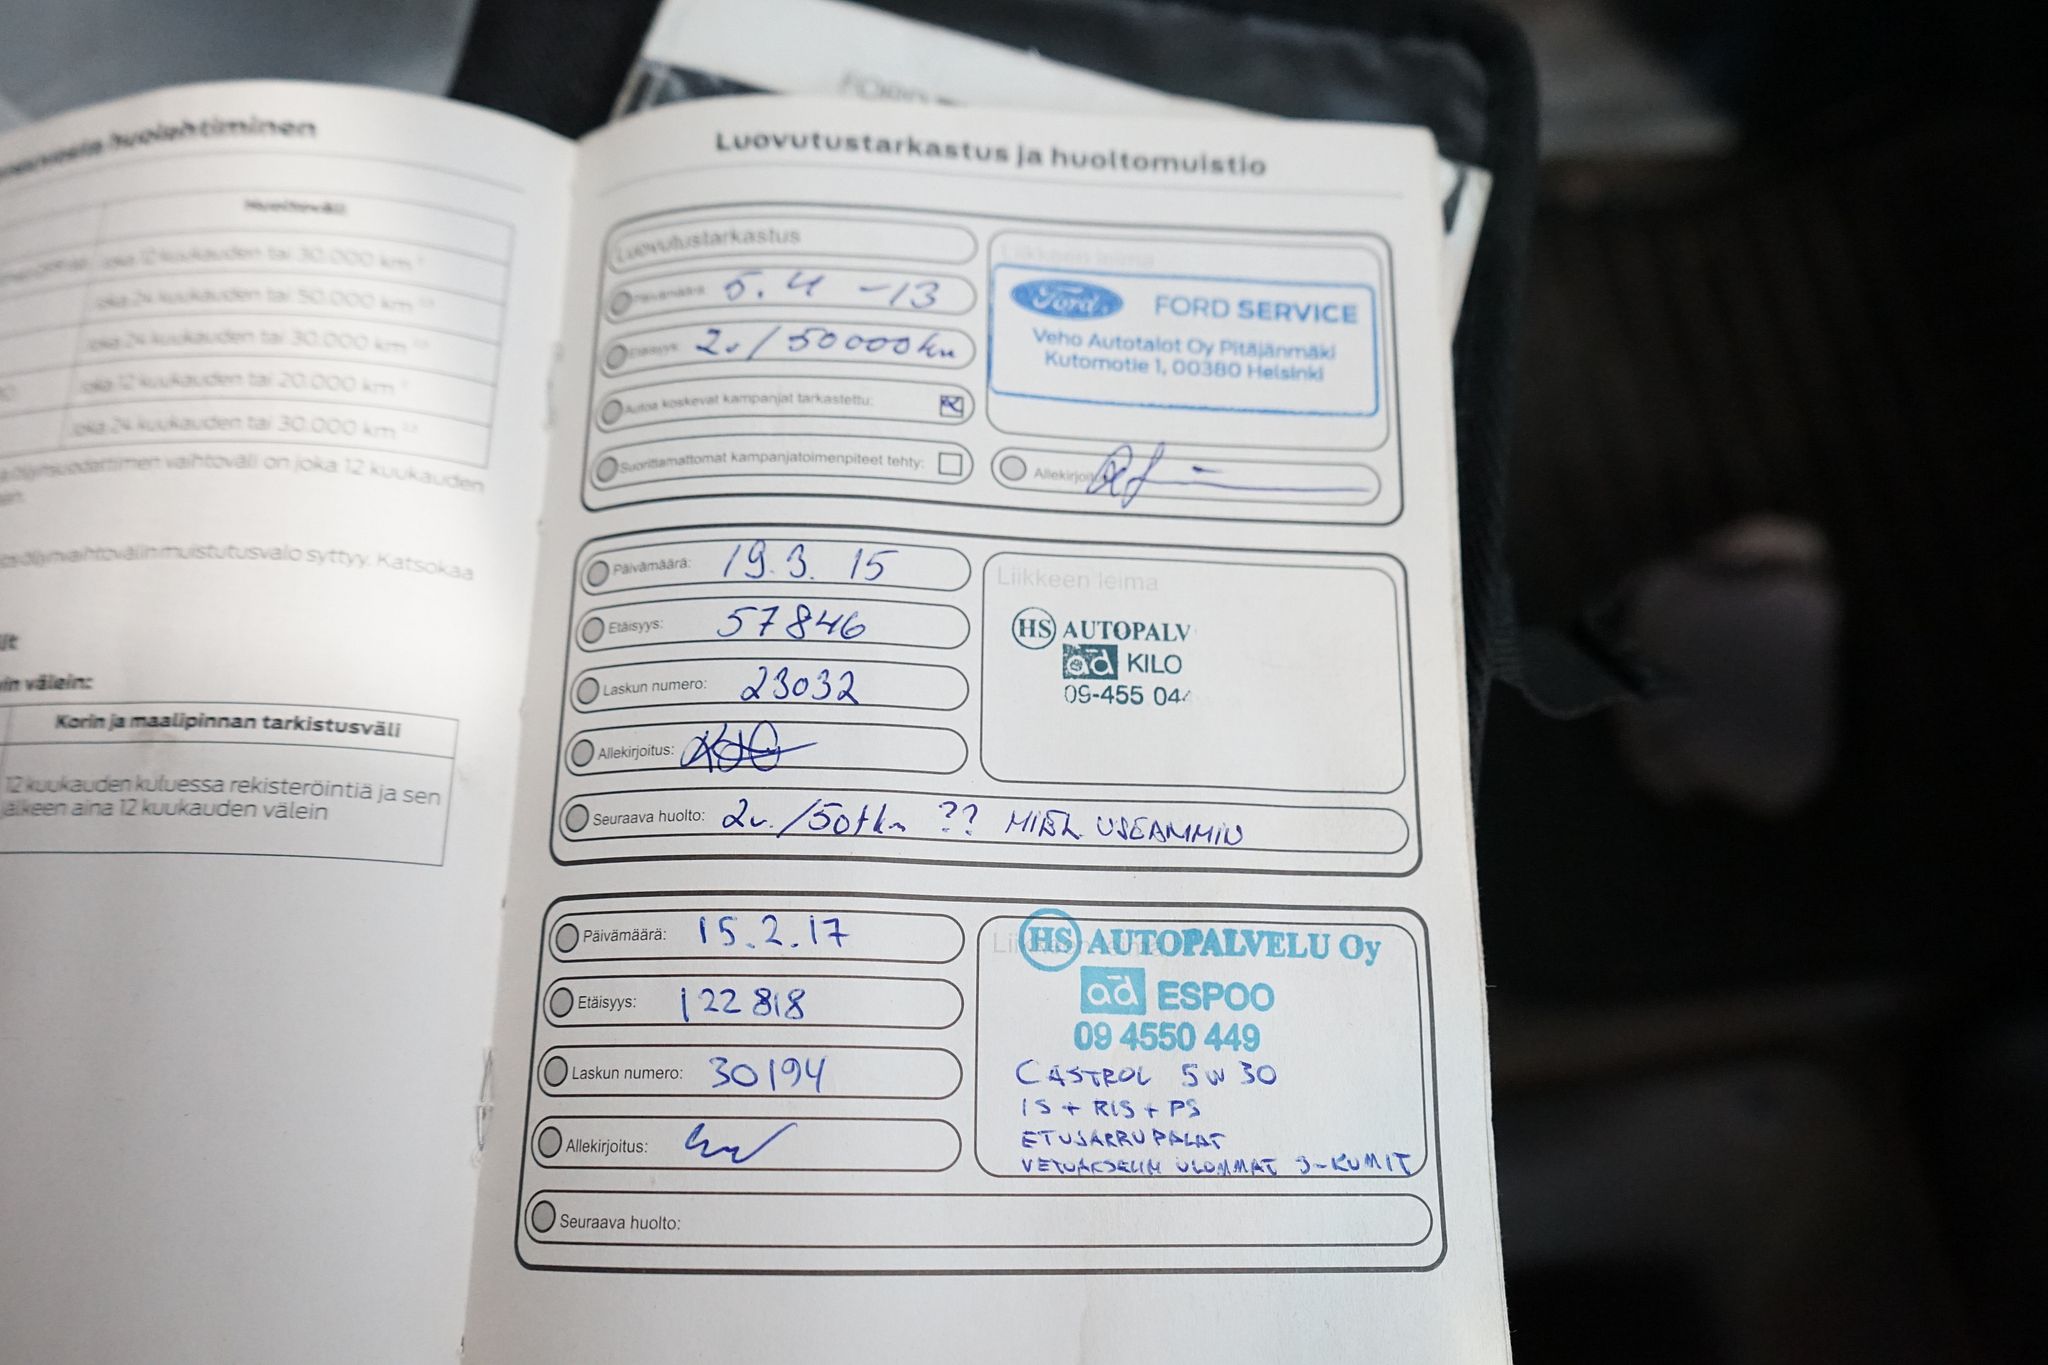 huolehtiminen
Huoltoväli
joka 12 kuukauden tai 30.000 km
joka 24 kuukauden tai 50.000 km
joka 24 kuukauden tai 30.000 km
joka 12 kuukauden tai 20.000 km
joka 24 kuukauden tai 30.000 km
vaihtoväli on joka 12 kuukauden
muistutusvalo syttyy. Katsokaa
välein:
Korin ja maalipinnan tarkistusväli
12 kuukauden kuluessa rekisteröintiä ja sen
jälkeen aina 12 kuukauden välein
FORD
Luovutustarkastus ja huoltomuistio
Luovutustarkastus
Päivämäärä: 5.4 -13
Etäisyys: 2v/50000km
Autoa koskevat kampanjat tarkastettu:
Suorittamattomat kampanjatoimenpiteet tehty:
Liikkeen leima
Ford FORD SERVICE
Veho Autotalot Oy Pitäjänmäki
Kutomotie 1, 00380 Helsinki
Allekirjoit
Päivämäärä: 19.3.15
Etäisyys: 57846
Laskun numero: 23032
Allekirjoitus:
Liikkeen leima
HS AUTOPALV
ad KILO
09-455 04
Seuraava huolto: 2v./50tkm ?? MIEL. USEAMMIN
Päivämäärä: 15.2.17
Etäisyys: 122818
Laskun numero: 30194
Allekirjoitus:
Liikkeen leima
HS AUTOPALVELU Oy
ad ESPOO
09 4550 449
CASTROL 5W30
IS + RIS + PS
ETUJARRUPALAT
VETOAKSELIN ULOMMAT S-KUMIT
Seuraava huolto: